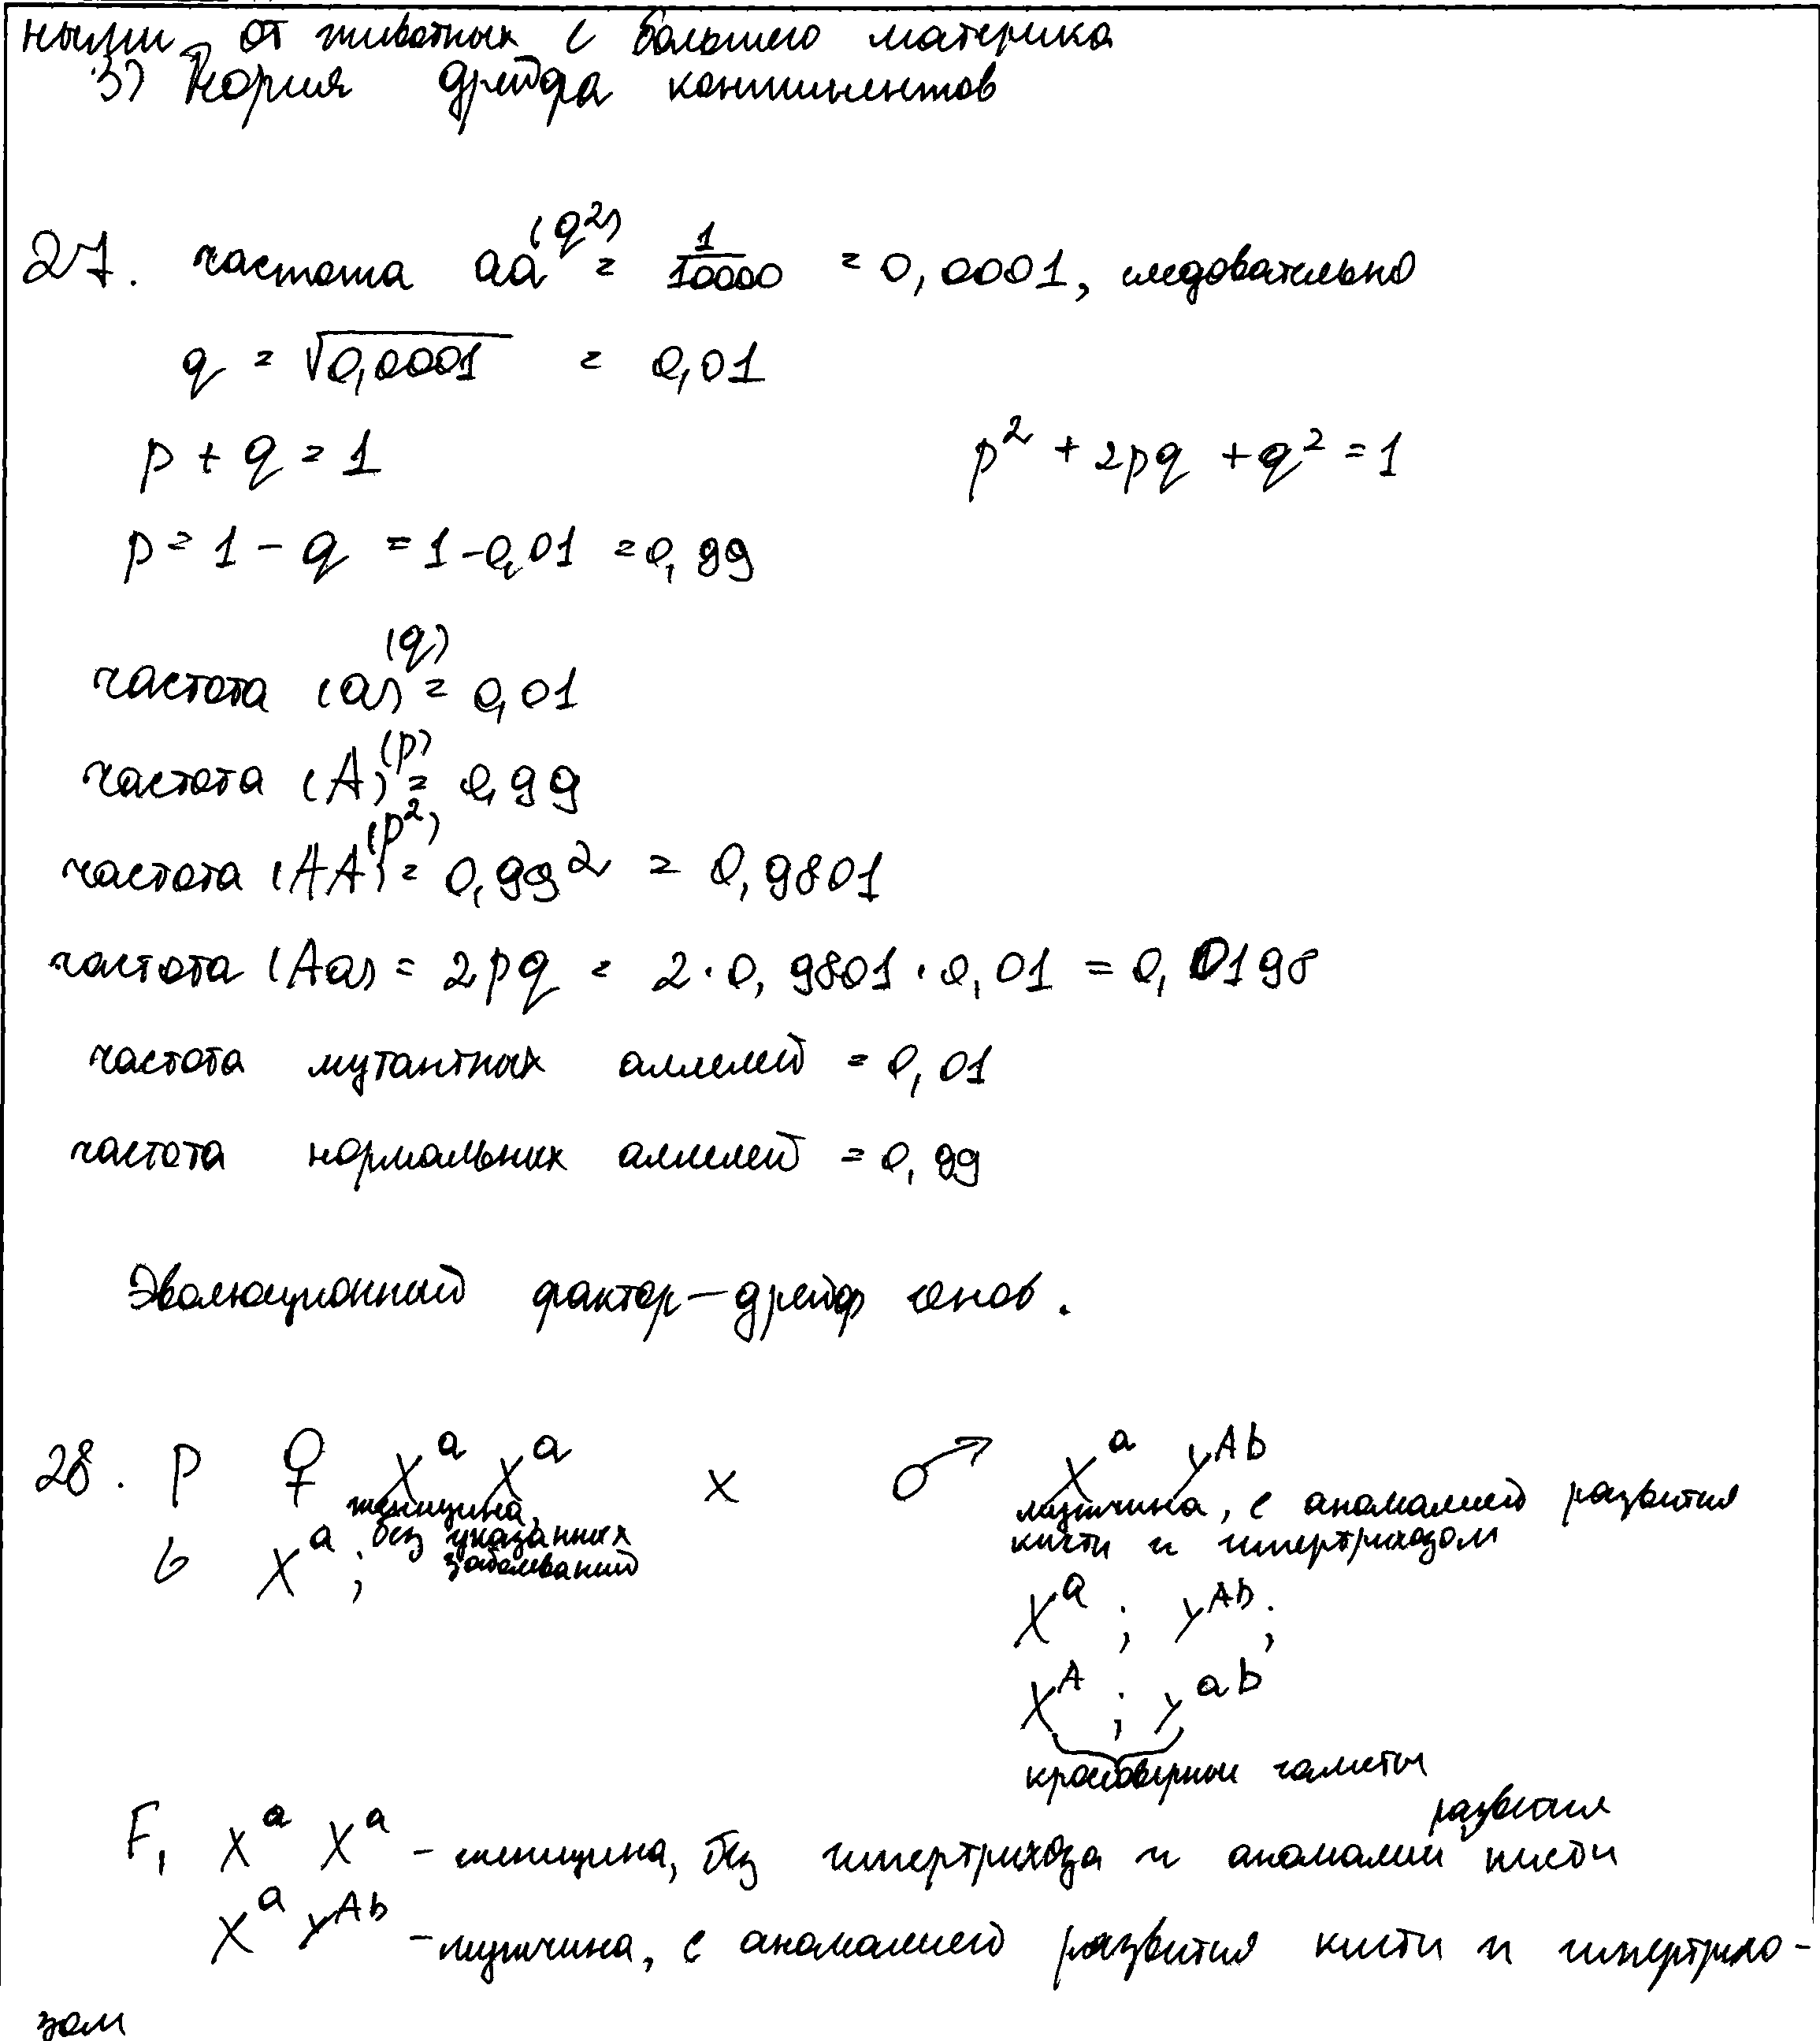 ными от животных с большего материка
3) Теория дрейфа континентов
27. частота aa (q²) = 1/10000 = 0,0001, следовательно
q = √0,0001 = 0,01
p + q = 1 p² + 2pq + q² = 1
p = 1 - q = 1 - 0,01 = 0,99
частота (a) (q) = 0,01
частота (A) (p) = 0,99
частота (AA) (p²) = 0,99² = 0,9801
частота (Aa) = 2pq = 2 · 0,9801 · 0,01 = 0,0198
частота мутантных аллелей = 0,01
частота нормальных аллелей = 0,99
Эволюционный фактор – дрейф генов.
28. P ♀ Xᵃ Xᵃ x ♂ Xᵃ Yᴬᵇ
женщина, без указанных заболеваний
мужчина, с аномалией развития
кисти и гипертрихозом
G Xᵃ; Xᵃ ; Yᴬᵇ;
Xᴬ ; Yᵃᵇ
кроссоверные гаметы
F₁ Xᵃ Xᵃ - женщина, без гипертрихоза и аномалии развития кисти
Xᵃ Yᴬᵇ - мужчина, с аномалией развития кисти и гипертрихо-
зом